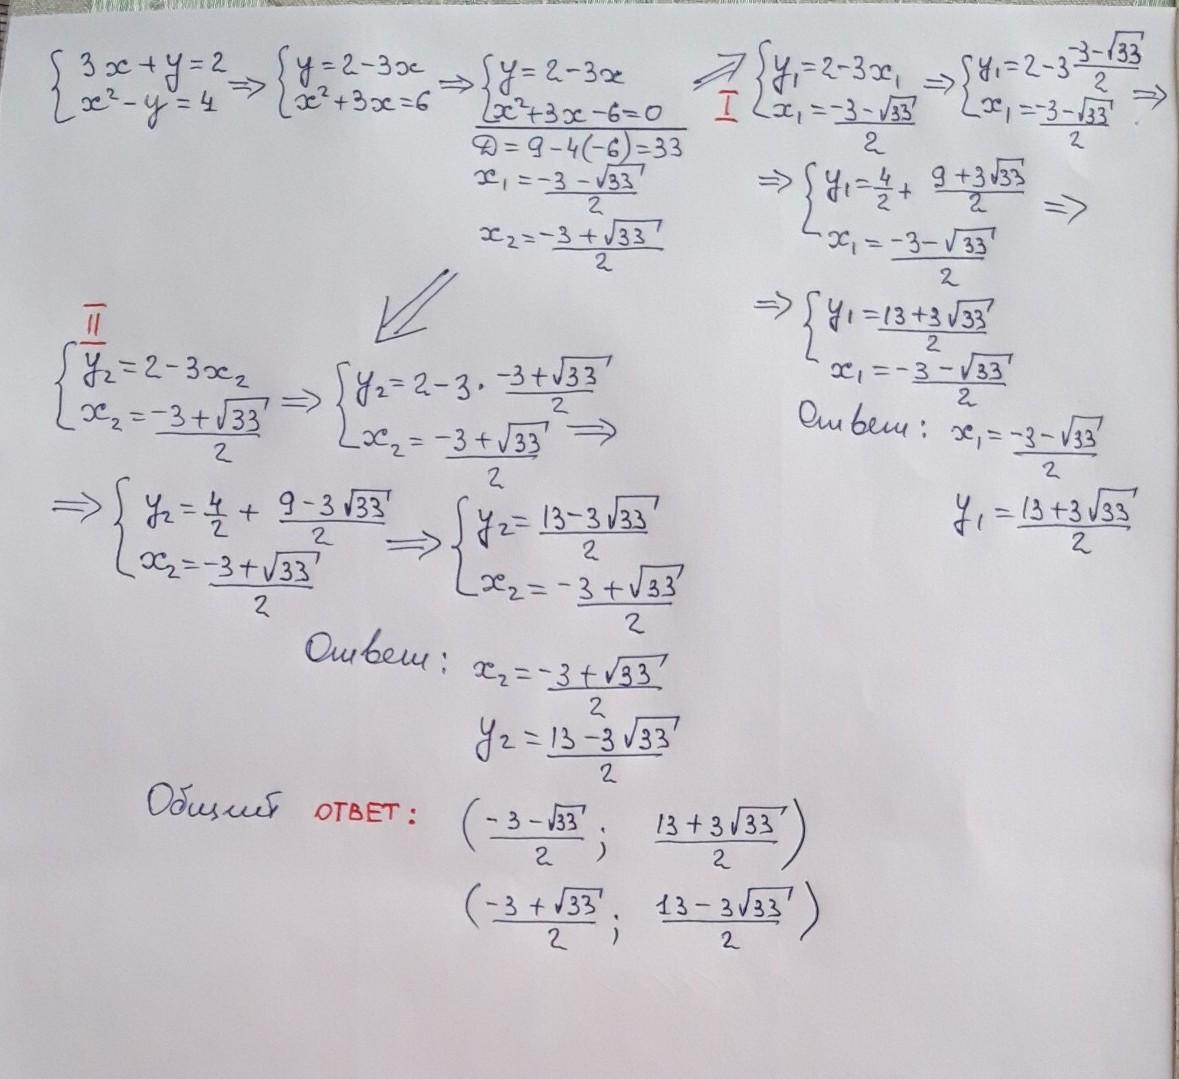 { 3x + y = 2
x² - y = 4 ⇒ { y = 2 - 3x
x² + 3x = 6 ⇒ { y = 2 - 3x
x² + 3x - 6 = 0
D = 9 - 4(-6) = 33
x₁ = (-3 - √33)/2
x₂ = (-3 + √33)/2
⇒ I { y₁ = 2 - 3x₁
x₁ = (-3 - √33)/2 ⇒ { y₁ = 2 - 3 (-3 - √33)/2
x₁ = (-3 - √33)/2 ⇒
⇒ { y₁ = 4/2 + (9 + 3√33)/2
x₁ = (-3 - √33)/2 ⇒
⇒ { y₁ = (13 + 3√33)/2
x₁ = (-3 - √33)/2
Ответ: x₁ = (-3 - √33)/2
y₁ = (13 + 3√33)/2
II
{ y₂ = 2 - 3x₂
x₂ = (-3 + √33)/2 ⇒ { y₂ = 2 - 3 · (-3 + √33)/2
x₂ = (-3 + √33)/2 ⇒
⇒ { y₂ = 4/2 + (9 - 3√33)/2
x₂ = (-3 + √33)/2 ⇒ { y₂ = (13 - 3√33)/2
x₂ = (-3 + √33)/2
Ответ: x₂ = (-3 + √33)/2
y₂ = (13 - 3√33)/2
Общий ОТВЕТ: ((-3 - √33)/2 ; (13 + 3√33)/2)
((-3 + √33)/2 ; (13 - 3√33)/2)